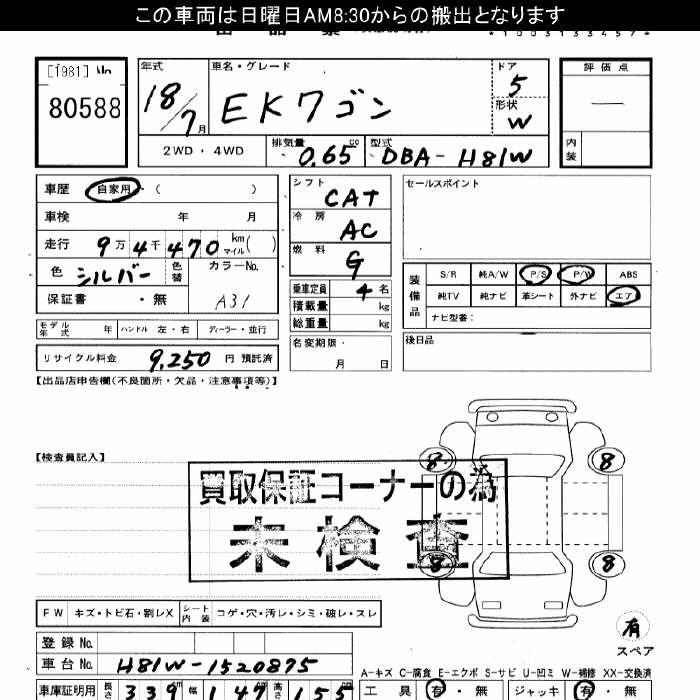 この車両は日曜日AM8:30からの搬出となります
[1981] No
80588
年式 車名・グレード ドア 評価点
18/7月 EKワゴン 5
形状 W
2WD・4WD 排気量 0.65 cc 型式 DBA-H81W 内装
車歴 自家用 ( ) シフト CAT セールスポイント
車検 年 月 冷房 AC
走行 9万4千470 km マイル ( ) 燃料 G
色 シルバー 色替 カラーNo. A31 乗車定員 4名
保証書 ・無 積載量 kg
総重量 kg
装備品 S/R 純A/W P/S P/W ABS
純TV 純ナビ 革シート 外ナビ エア
ナビ型番:
モデル年式 年 ハンドル 左・右 ディーラー・並行
名変期限・ 月 日 後日品
リサイクル料金 9,250 円 預託済
【出品店申告欄(不良箇所・欠品・注意事項等)】
【検査員記入】
買取保証コーナーの為
未検査
8 8
8 8
有
スペア
FW キズ・トビ石・割レX シート内装 コゲ・穴・汚レ・シミ・破レ・スレ
登録No.
車台No. H81W-1520875
A-キズ C-腐食 E-エクボ S-サビ U-凹ミ W-補修 XX-交換済
車庫証明用 長さ 339 幅 147 高さ 155
工具 有・無 ジャッキ 有・無